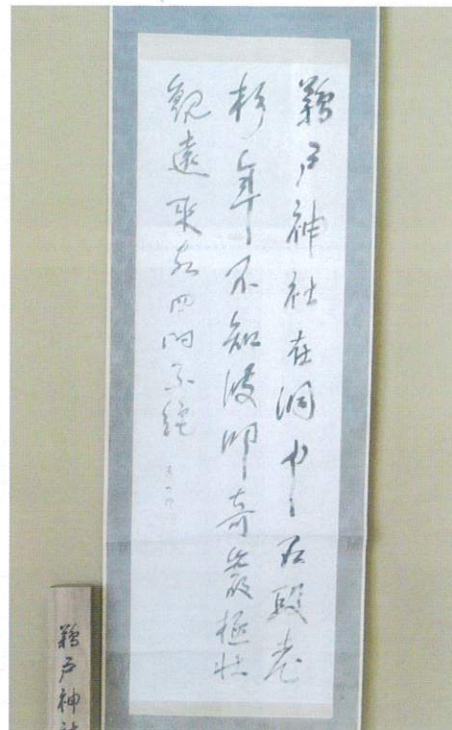 鵜戸神社在洞中石段老
杉年不知波叩奇巌極壮
観遠来四時不絶
鵜戸神社